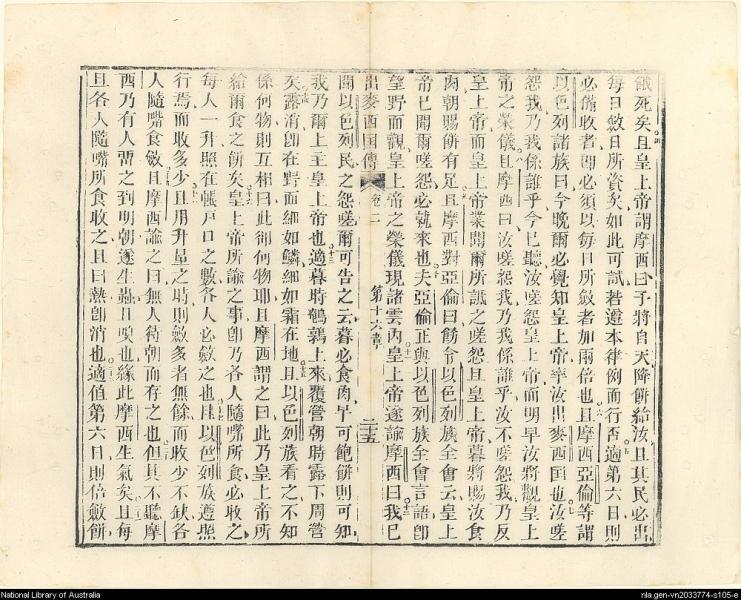 餓死矣且皇上帝謂摩西曰予將自天降餅給汝且其民必出
每日斂日所資矣如此可試若遵本律例而行否適第六日則
必備收者即必須以每日所斂者加兩倍也且摩西亞倫等謂
以色列諸族曰今晚爾必覺知皇上帝率汝出麥西国也汝嗟
怨我乃我係誰乎今已聽汝嗟怨皇上帝而明早汝將觀皇上
帝之榮儀且摩西曰汝嗟怨我乃我係誰乎汝不嗟怨我乃反
皇上帝而皇上帝業聞爾所詆之嗟怨且皇上帝暮將賜汝食
肉朝賜餅有足且摩西對亞倫曰飭令以色列族全會云皇上
帝已聞爾嗟怨必就來也夫亞倫正與以色列族全會言語即
望野而觀皇上帝之榮儀現諸雲內皇上帝遂諭摩西曰我已
出麥西国傳 卷二 第十六章 二十五
聞以色列民之怨嗟爾可告之云暮必食肉早可飽餅則可知
我乃爾上主皇上帝也適暮時鵪鶉上來覆營朝時露下周營
矣露消即在野而細如鱗細如霜在地且以色列族看之不知
係何物則互相曰此卻何物耶且摩西謂之曰此乃皇上帝所
給爾食之餅矣皇上帝所諭之事即乃各人隨嘴所食必收之
每人一升照在帳戶口之數各人必斂之也且以色列族遵照
行焉而收多少且用升量之時則斂多者無餘而收少不缺各
人隨嘴食斂且摩西諭之曰無人待朝而存之也但其不聽摩
西乃有人畱之到明朝遂生蟲且嗅也緣此摩西生氣矣且每
旦各人隨嘴所食收之且日熱即消也適值第六日則倍斂餅
National Library of Australia
nla.gen-vn2033774-s105-e